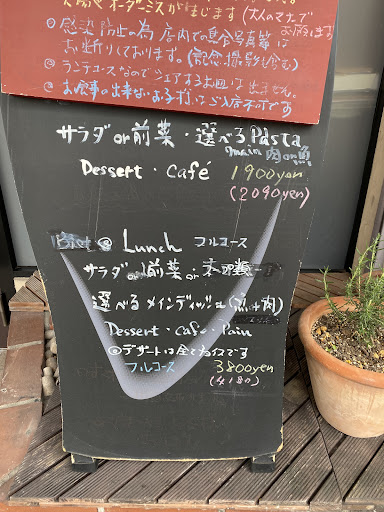 オーダーミスがはじます(大人のマナーで
◎感染防止の為店内での集合写真等は
お断りしております。(記念撮影も含む)
◎ランチコースなのでシェアするお皿は出ません。
◎お食事の出来ないお子様はご入店不可です
サラダor前菜・選べるPasta
main 肉or魚
Dessert・Café 1900yen
(2090yen)
Lunch フルコース
サラダor前菜or
選べるメインディッシュ(魚+肉)
Dessert・cafe・Pain
◎デザートは全てカイスです
フルコース 3800yen
(4180)